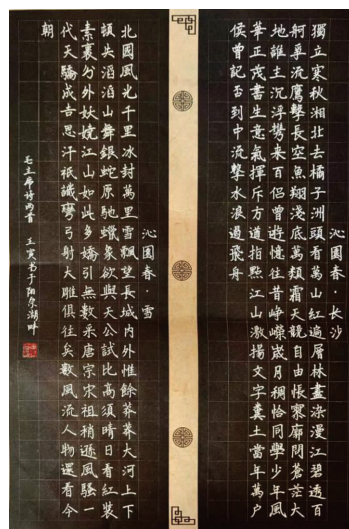 沁園春·長沙
獨立寒秋湘北去橘子洲頭看萬山紅遍層林盡染漫江碧透百
舸爭流鷹擊長空魚翔淺底萬類霜天競自由悵寥廓問蒼茫大
地誰主沉浮攜來百侶曾遊憶往昔崢嶸歲月稠恰同學少年風
華正茂書生意氣揮斥方遒指點江山激揚文字糞土當年萬户
侯曾記否到中流擊水浪遏飛舟
沁園春·雪
北國風光千里冰封萬里雪飄望長城内外惟餘莽莽大河上下
頓失滔滔山舞銀蛇原馳蠟象欲與天公試比高須晴日看紅裝
素裹分外妖嬈江山如此多嬌引無數采唐宗宋祖稍遜風騷一
代天驕成吉思汗祇識彎弓射大雕俱往矣數風流人物還看今
朝
毛主席诗两首 壬寅书于阳宗湖畔